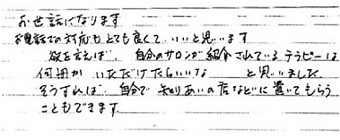 お世話になります
お電話での対応もとても良くて、いいと思います
欲を言えば、自分のサロンが紹介されているテラピーは
何冊かいただけたらいいな　と思いました
そうすれば、自分で知りあいの店などに置いてもらう
こともできます